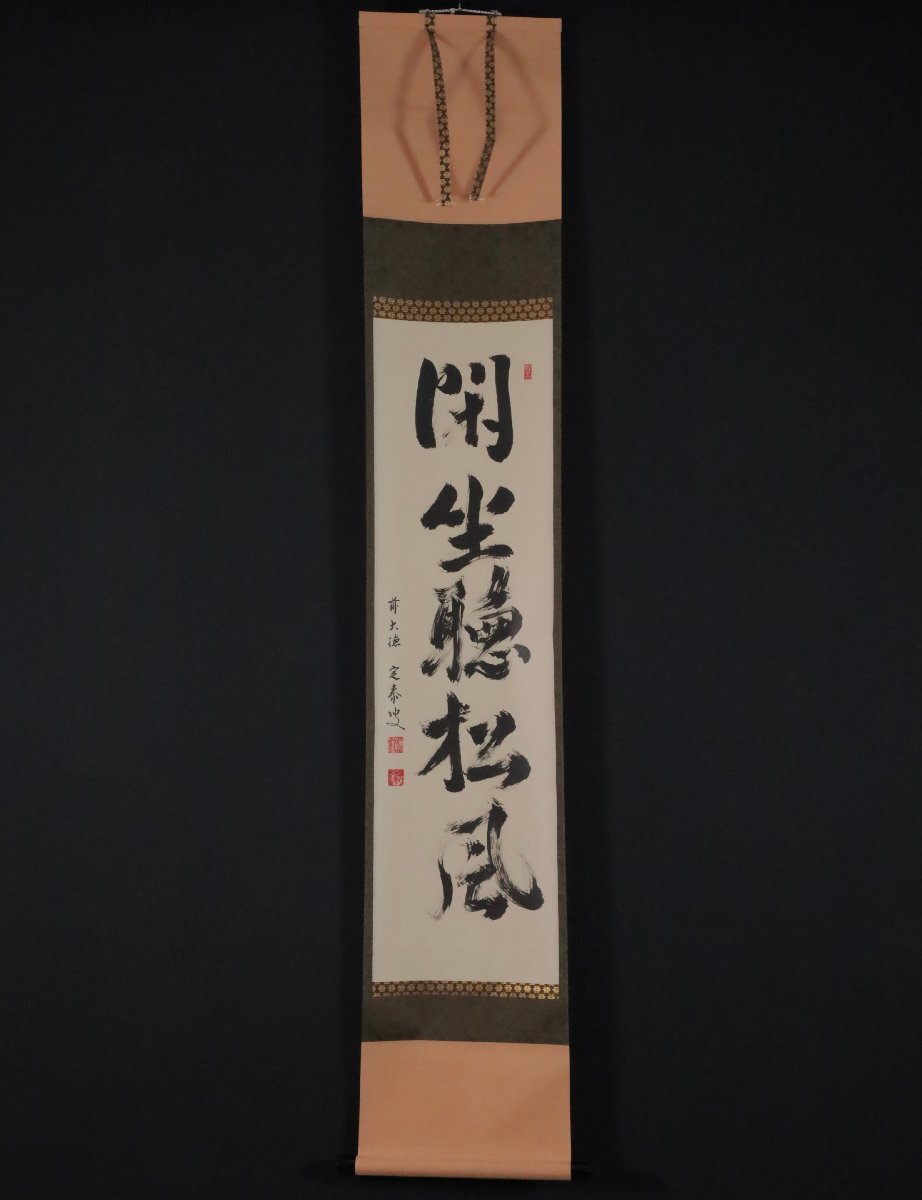 閑坐聽松風
前大德 定泰叟